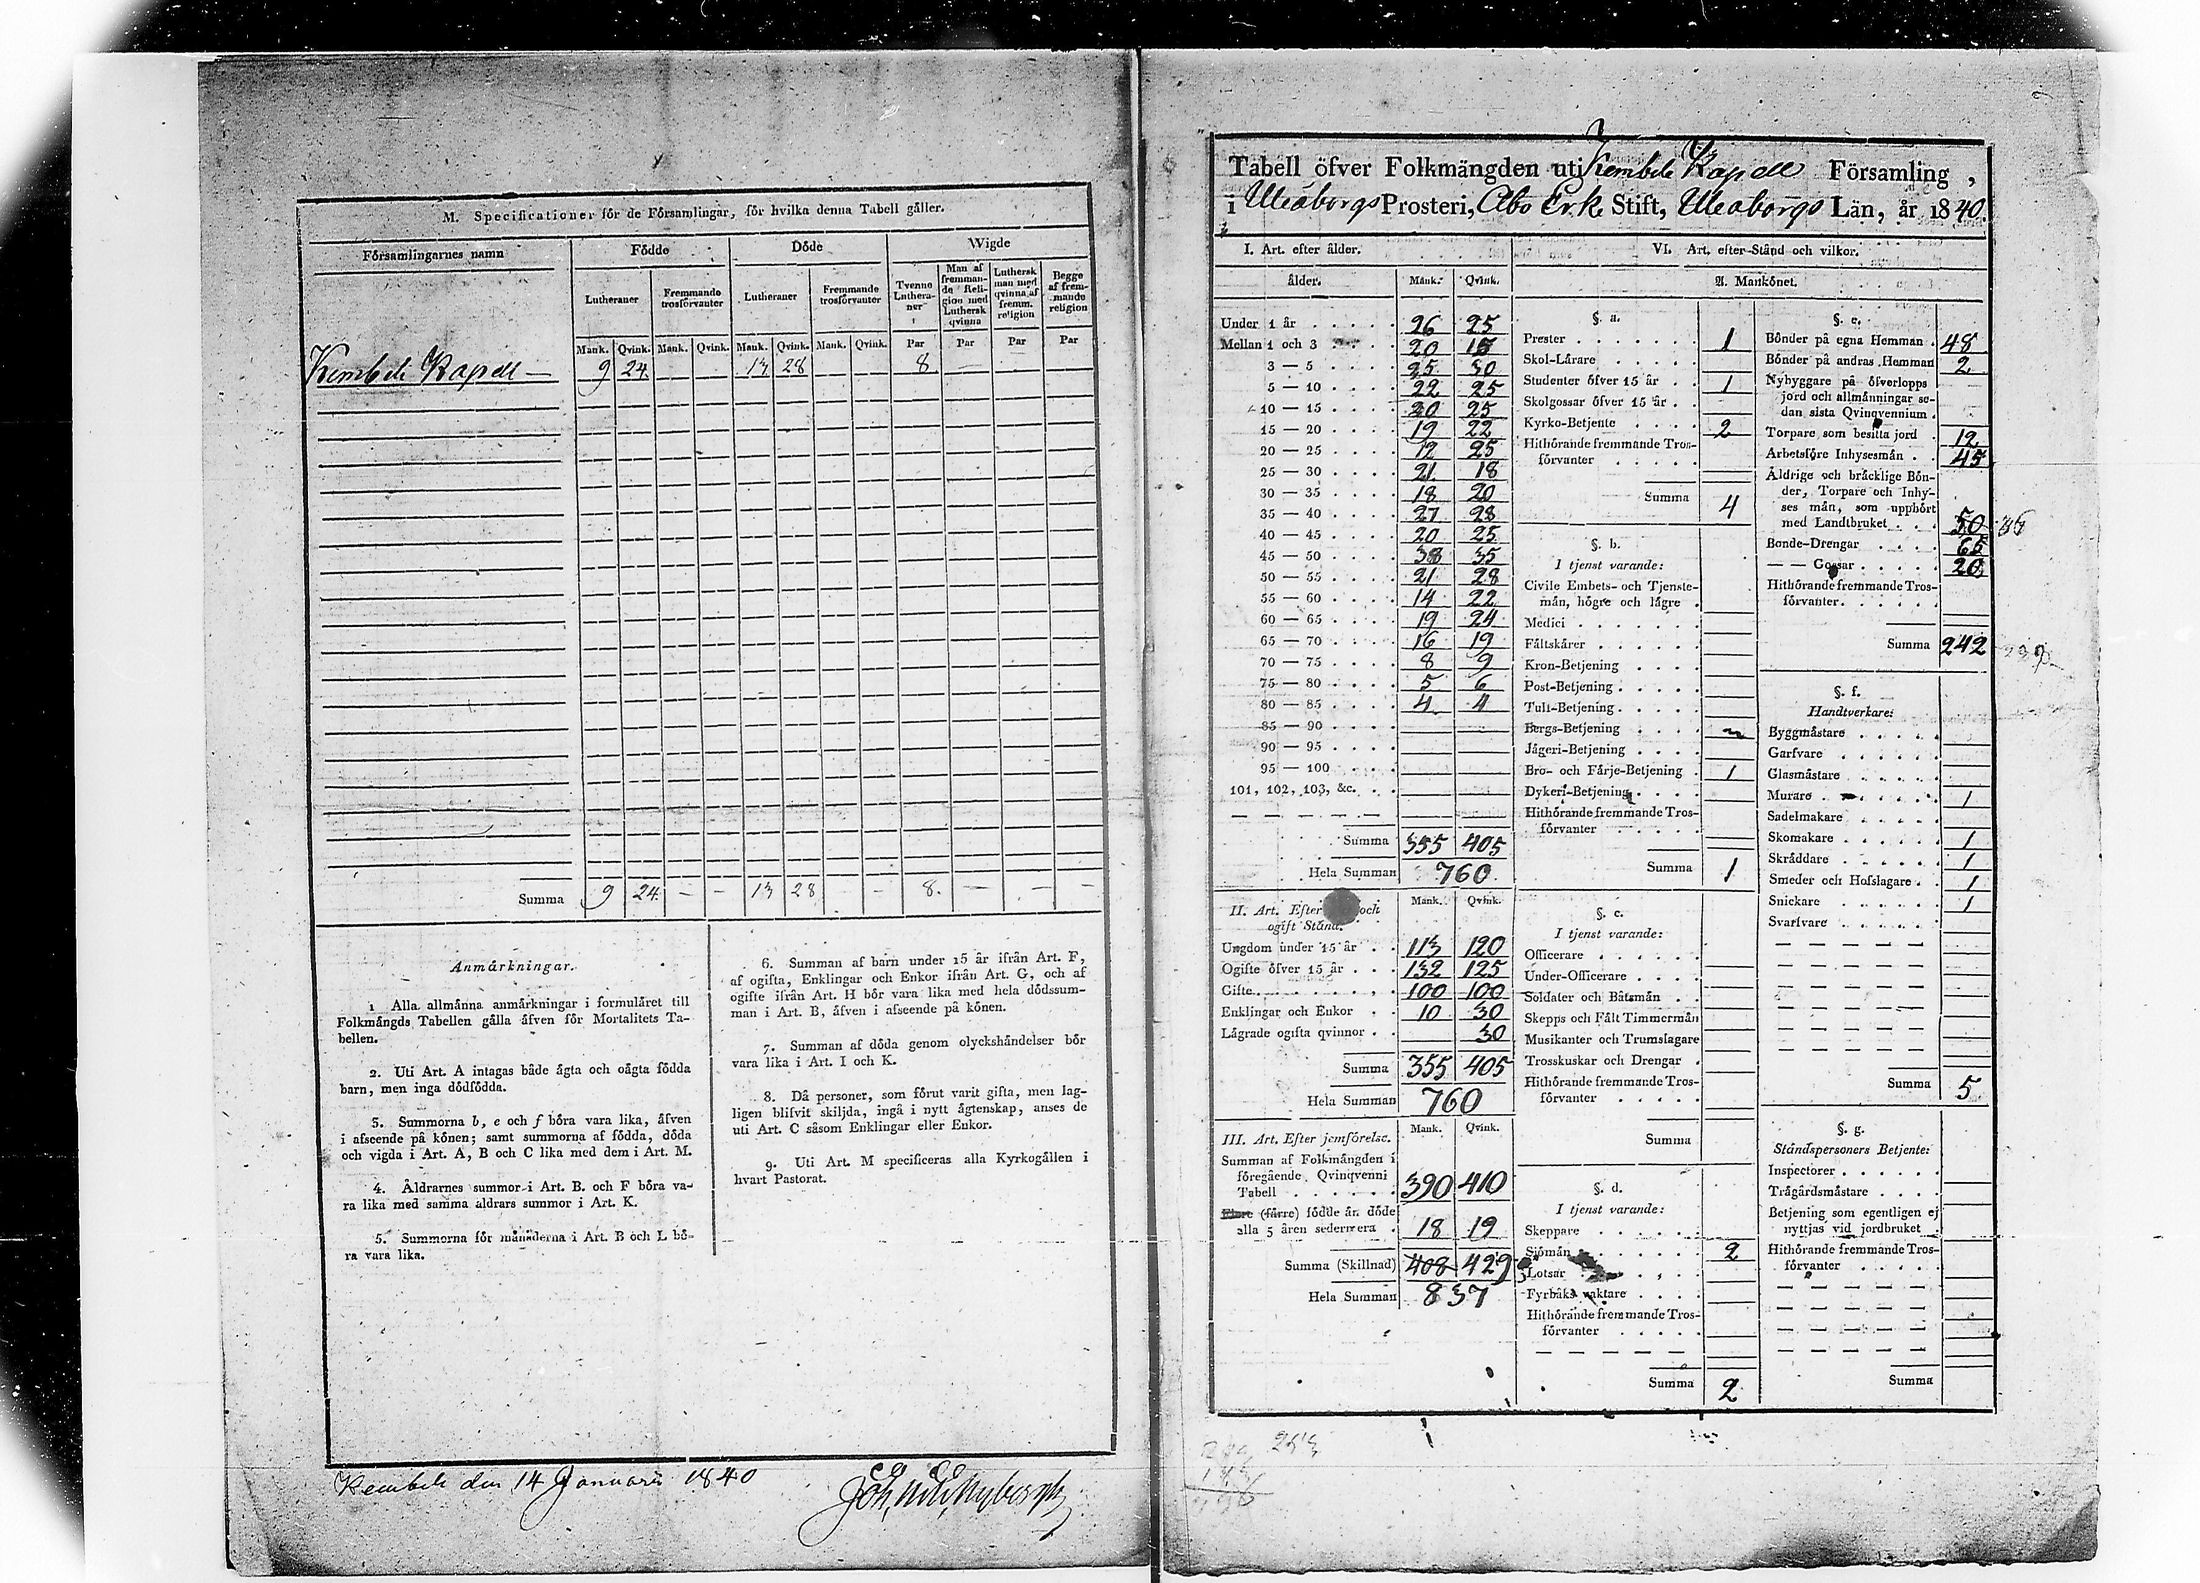 M. Specificationer för de Församlingar, för hvilka denna Tabell gäller.
Församlingarnes namn Födde Döde Wigde
Lutheraner Fremmande trosförvanter Lutheraner Fremmande trosförvanter Tvenne Lutheraner Man af fremmande Religion med Luthersk qvinna Luthersk man med qvinna af fremm. religion Begge af fremmande religion
Mank. Qvink. Mank. Qvink. Mank. Qvink. Mank. Qvink. Par Par Par Par
Kembele Kapell — 9 24 13 28 8 —
Summa 9 24. — — 13 28 — 8. — — —
Anmärkningar.
1 Alla allmänna anmärkningar i formuläret till
Folkmängds Tabellen gälla äfven för Mortalitets Ta-
bellen.
2. Uti Art. A intagas både ägta och oägta födda
barn, men inga dödfödda.
3. Summorna b, e och f böra vara lika, äfven
i afseende på könen; samt summorna af födda, döda
och vigda i Art. A, B och C lika med dem i Art. M.
4. Äldrarnes summor i Art. B. och F böra va-
ra lika med samma äldrars summor i Art. K.
5. Summorna för månäderna i Art. B och L bö-
ra vara lika.
6. Summan af barn under 15 år ifrån Art. F,
af ogifta, Enklingar och Enkor ifrån Art. G, och af
ogifte ifrån Art. H bör vara lika med hela dödssum-
man i Art. B, äfven i afseende på könen.
7. Summan af döda genom olyckshändelser bör
vara lika i Art. I och K.
8. Då personer, som förut varit gifta, men lag-
ligen blifvit skiljda, ingå i nytt ägtenskap, anses de
uti Art. C såsom Enklingar eller Enkor.
9. Uti Art. M specificeras alla Kyrkogällen i
hvart Pastorat.
Kembele den 14 Januarii 1840
Tabell öfver Folkmängden uti Kembele Kapell Församling,
i Uleåborgs Prosteri, Åbo Erke Stift, Uleaborgs Län, år 1840.
I. Art. efter ålder.
ålder. Mank. Qvink.
Under 1 år 26 25
Mellan 1 och 3 20 15
3 — 5 25 30
5 — 10 22 25
10 — 15 20 25
15 — 20 19 22
20 — 25 12 25
25 — 30 21 18
30 — 35 18 20
35 — 40 27 28
40 — 45 20 25
45 — 50 38 35
50 — 55 21 28
55 — 60 14 22
60 — 65 19 24
65 — 70 16 19
70 — 75 8 9
75 — 80 5 6
80 — 85 4 4
85 — 90
90 — 95
95 — 100
101, 102, 103, &c.
Summa 355 405
Hela Summan 760
II. Art. Efter och
ogift Stånd. Mank. Qvink.
Ungdom under 15 år 113 120
Ogifte öfver 15 år 132 125
Gifte 100 100
Enklingar och Enkor 10 30
Lägrade ogifta qvinnor 30
Summa 355 405
Hela Summan 760
III. Art. Efter jemförelse. Mank. Qvink.
Summan af Folkmängden i
föregående Qvinqvenni
Tabell 390 410
Flere (färre) födde än döde
alla 5 åren sedermera 18 19
Summa (Skillnad) 408 429
Hela Summan 837
VI. Art. efter Stånd och vilkor.
A. Mankönet.
§. a.
Prester 1
Skol-Lärare
Studenter öfver 15 år 1
Skolgossar öfver 15 år
Kyrko-Betjente 2
Hithörande fremmande Tros-
förvanter
Summa 4
§. b.
I tjenst varande:
Civile Embets- och Tjenste-
män, högre och lägre
Medici
Fältskärer
Kron-Betjening
Post-Betjening
Tull-Betjening
Bergs-Betjening
Jägeri-Betjening
Bro- och Färje-Betjening 1
Dykeri-Betjening
Hithörande fremmande Tros-
förvanter
Summa 1
§. c.
I tjenst varande:
Officerare
Under-Officerare
Soldater och Båtsmän
Skepps och Fält Timmermän
Musikanter och Trumslagare
Trosskuskar och Drengar
Hithörande fremmande Tros-
förvanter
Summa
§. d.
I tjenst varande:
Skeppare
Sjömän 2
Lotsar
Fyrbåks vaktare
Hithörande fremmande Tros-
förvanter
Summa 2
§. e.
Bönder på egna Hemman 48
Bönder på andras Hemman 2
Nybyggare på öfverlopps
jord och allmänningar se-
dan sista Qvinqvennium
Torpare som besitta jord 12
Arbetsföre Inhysesmän 45
Åldrige och bräcklige Bön-
der, Torpare och Inhy-
ses män, som upphört
med Landtbruket 50
Bonde-Drengar 65
— — Gossar 20
Hithörande fremmande Tros-
förvanter
Summa 242
§. f.
Handtverkare:
Byggmästare
Garfvare
Glasmästare
Murare 1
Sadelmakare
Skomakare 1
Skräddare 1
Smeder och Hofslagare 1
Snickare 1
Svarfvare
Summa 5
§. g.
Ståndspersoners Betjente:
Inspectorer
Trägårdsmästare
Betjening som egentligen ej
nyttjas vid jordbruket
Hithörande fremmande Tros-
förvanter
Summa